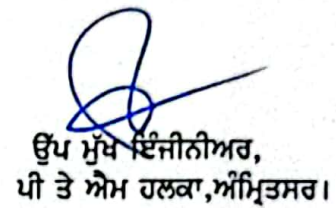 ਉੱਪ ਮੁੱਖ ਇੰਜੀਨੀਅਰ,
ਪੀ ਤੇ ਐਮ ਹਲਕਾ,ਅੰਮ੍ਰਿਤਸਰ।